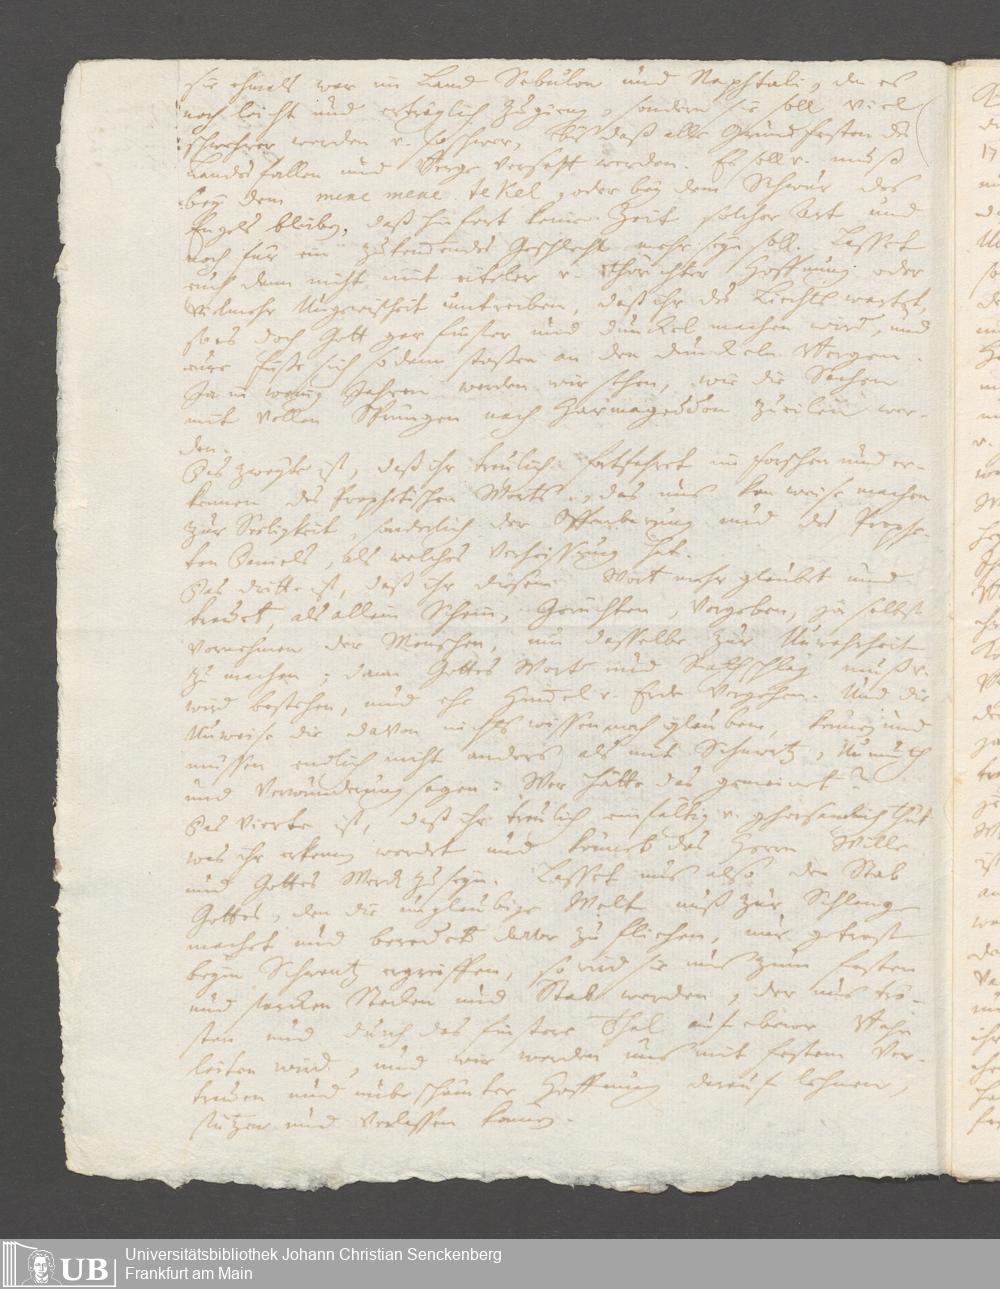 sie ehmals war im Land Sebulon und Naphtali, da es
noch leicht und erträglich zugieng, sondern sie soll viel
schwehrer werden v. so schwer, daß alle Grundfesten des
Landes fallen und Berge versetzt werden. Es soll v. muß
bey dem mene mene tekel, oder bey dem Schwur des
Engels bleiben, daß hinfort keine Zeit solcher Art und
noch für ein zukommendes Geschlecht mehr seyn soll. Lasset
euch dann nicht mit eitler v. thörichter Hoffnung oder
vielmehr Ungewißheit umtreiben, daß ihr des Liechts wartet,
so es doch Gott gar finster und dunckel machen wird, und
eure Füße sich sodann stoßen an den dunckeln Bergen.
Ja in wenig Jahren werden wir sehen, wie die Sachen
mit vollen Sprüngen nach Harmageddon zueilen wer-
den.
Das zweyte ist, daß ihr treulich fortfahret im forschen und er-
kennen des Prophetischen Worts, das uns kan weise machen
zur Seeligkeit, sonderlich der Offenbarung und des Prophe-
ten Daniels, als welches Verheissung hat.
Das dritte ist, daß ihr diesem Wort mehr glaubet und
trauet, als allem Schein, Gerüchten, Vorgeben, ja selbst
Vornehmen der Menschen, um dasselbe zur Unwahrheit
zu machen; dann Gottes Wort und Rathschlag muß v.
wird bestehen, und ehe Himmel v. Erde vergehen. Und die
Unweise die davon nichts wissen noch glauben, können und
müssen endlich nicht anders als mit Schmertz, Unmuth
und Verwunderung sagen: Wer hätte das gemeint?
Das Vierte ist, daß ihr treulich einfältig v. gehorsamlich thut
was ihr erkennen werdet und könnet des Herrn Wille
und Gottes Werck zu seyn. Lasset uns also den Stab
Gottes, den die ungläubige Welt uns zur Schlange
machet und beredet davor zu fliehen, nur getrost
beym Schwantz ergreiffen, so wird sie uns zum festen
und starcken Stecken und Stab werden, der uns trö-
sten und durch das finstere Thal auf ebener Bahn
leiten wird, und wir werden uns mit festem Ver-
trauen und unbeschämter Hoffnung darauf lehnen,
stützen und verlassen können.
UB
Universitätsbibliothek Johann Christian Senckenberg
Frankfurt am Main